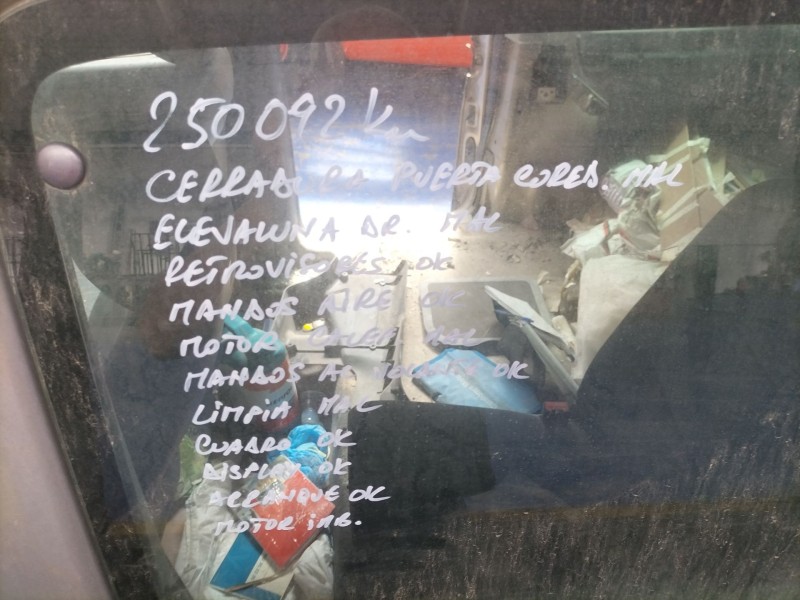 250092 Km
CERRADURA PUERTA CORED. MAL
ELEVALUNA DR. MAL
RETROVISORES OK
MANDOS AIRE OK
MOTOR CALEF MAL
MANDOS AL VOLANTE OK
LIMPIA MAL
CUADRO OK
DISPLAY OK
ARRANQUE OK
MOTOR IMB.